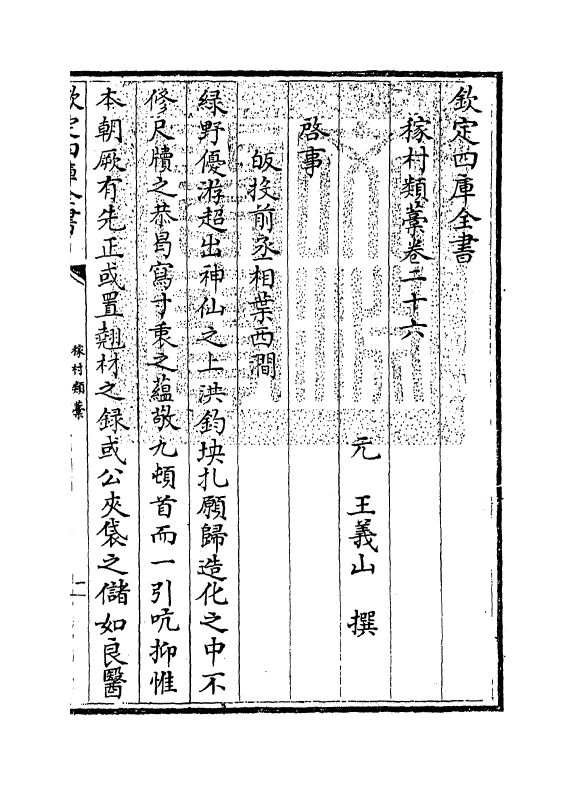 欽定四庫全書
稼村類藁卷二十六
元 王義山 撰
啓事
皈投前丞相葉西澗
綠野優游超出神仙之上洪鈞坱圠願歸造化之中不
修尺牘之恭曷寫寸衷之蘊敬九頓首而一引吭抑惟
本朝厥有先正或置翹材之録或公夾袋之儲如良醫
欽定四庫全書
稼村類藁
一